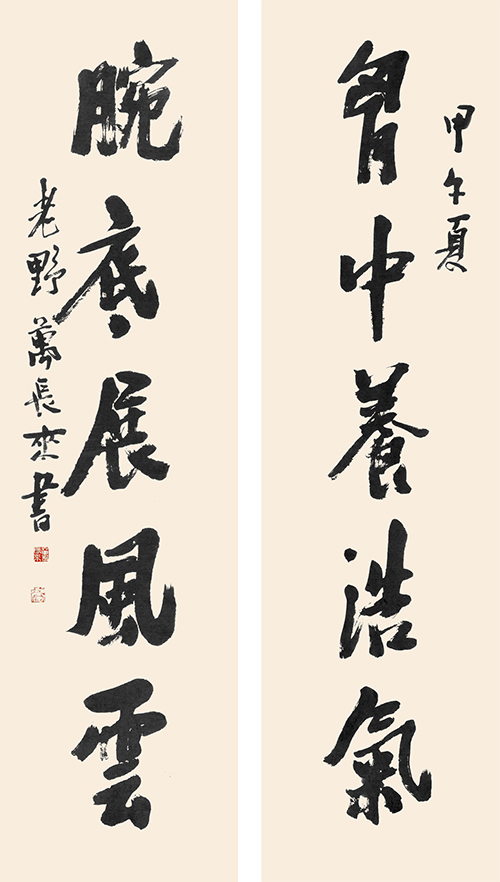 甲午夏
胷中養浩氣
腕底展風雲
老野萬長來書